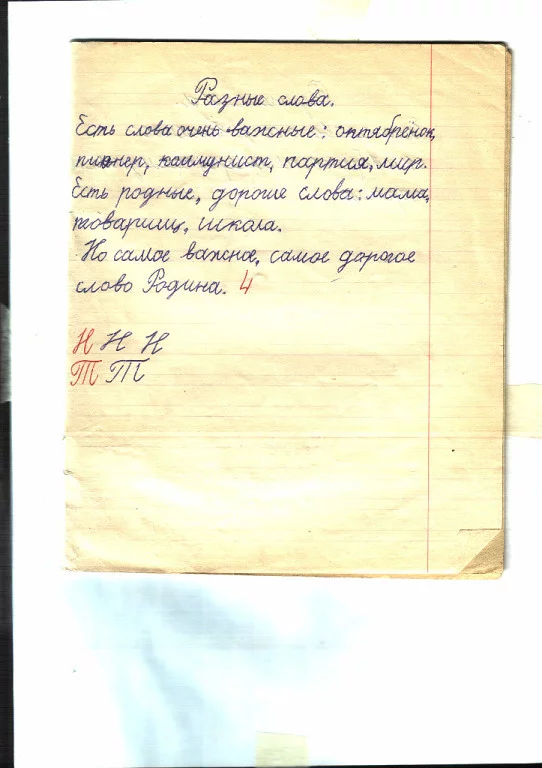 Разные слова.
Есть слова очень важные: октябрёнок,
пионер, коммунист, партия, мир.
Есть родные, дорогие слова: мама,
товарищ, школа.
Но самое важное, самое дорогое
слово Родина. 4
Н Н Н
Т Т